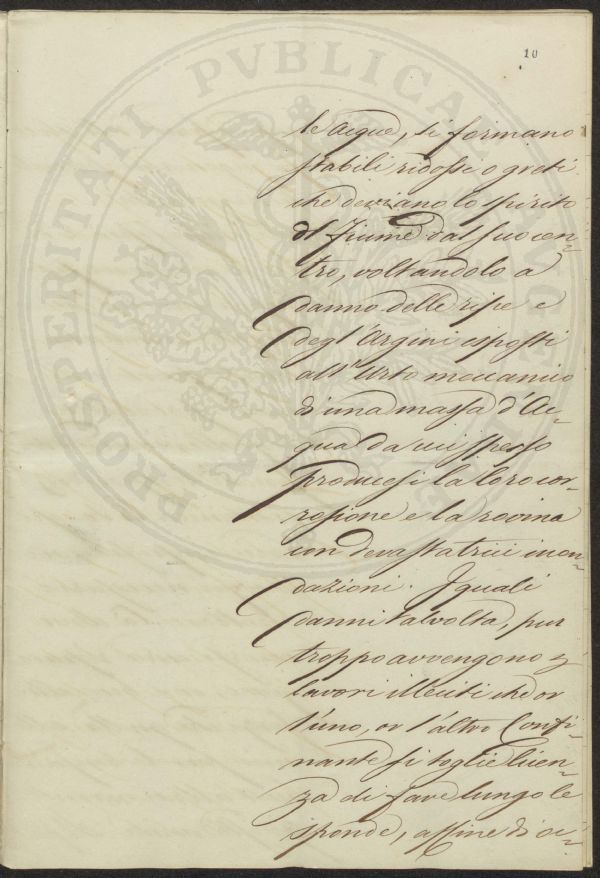 10
le acque, si formano
stabili ridossi o greti
che deviano lo spirito
del fiume dal suo cen=
tro, voltandolo a
danno delle ripe e
degl'Argini esposti
all'Urto meccanico
d'una massa d'Ac=
qua da cui spesso
producesi la loro cor=
rosione e la rovina
con devastatrici inon=
dazioni. I quali
danni talvolta, pur
troppo avvengono p
lavori illeciti che or
l'uno, or l'altro Confi=
nante si toglie licen=
za di fare lungo le
sponde, affine di oc=
PROSPERITATI PVBLICAE